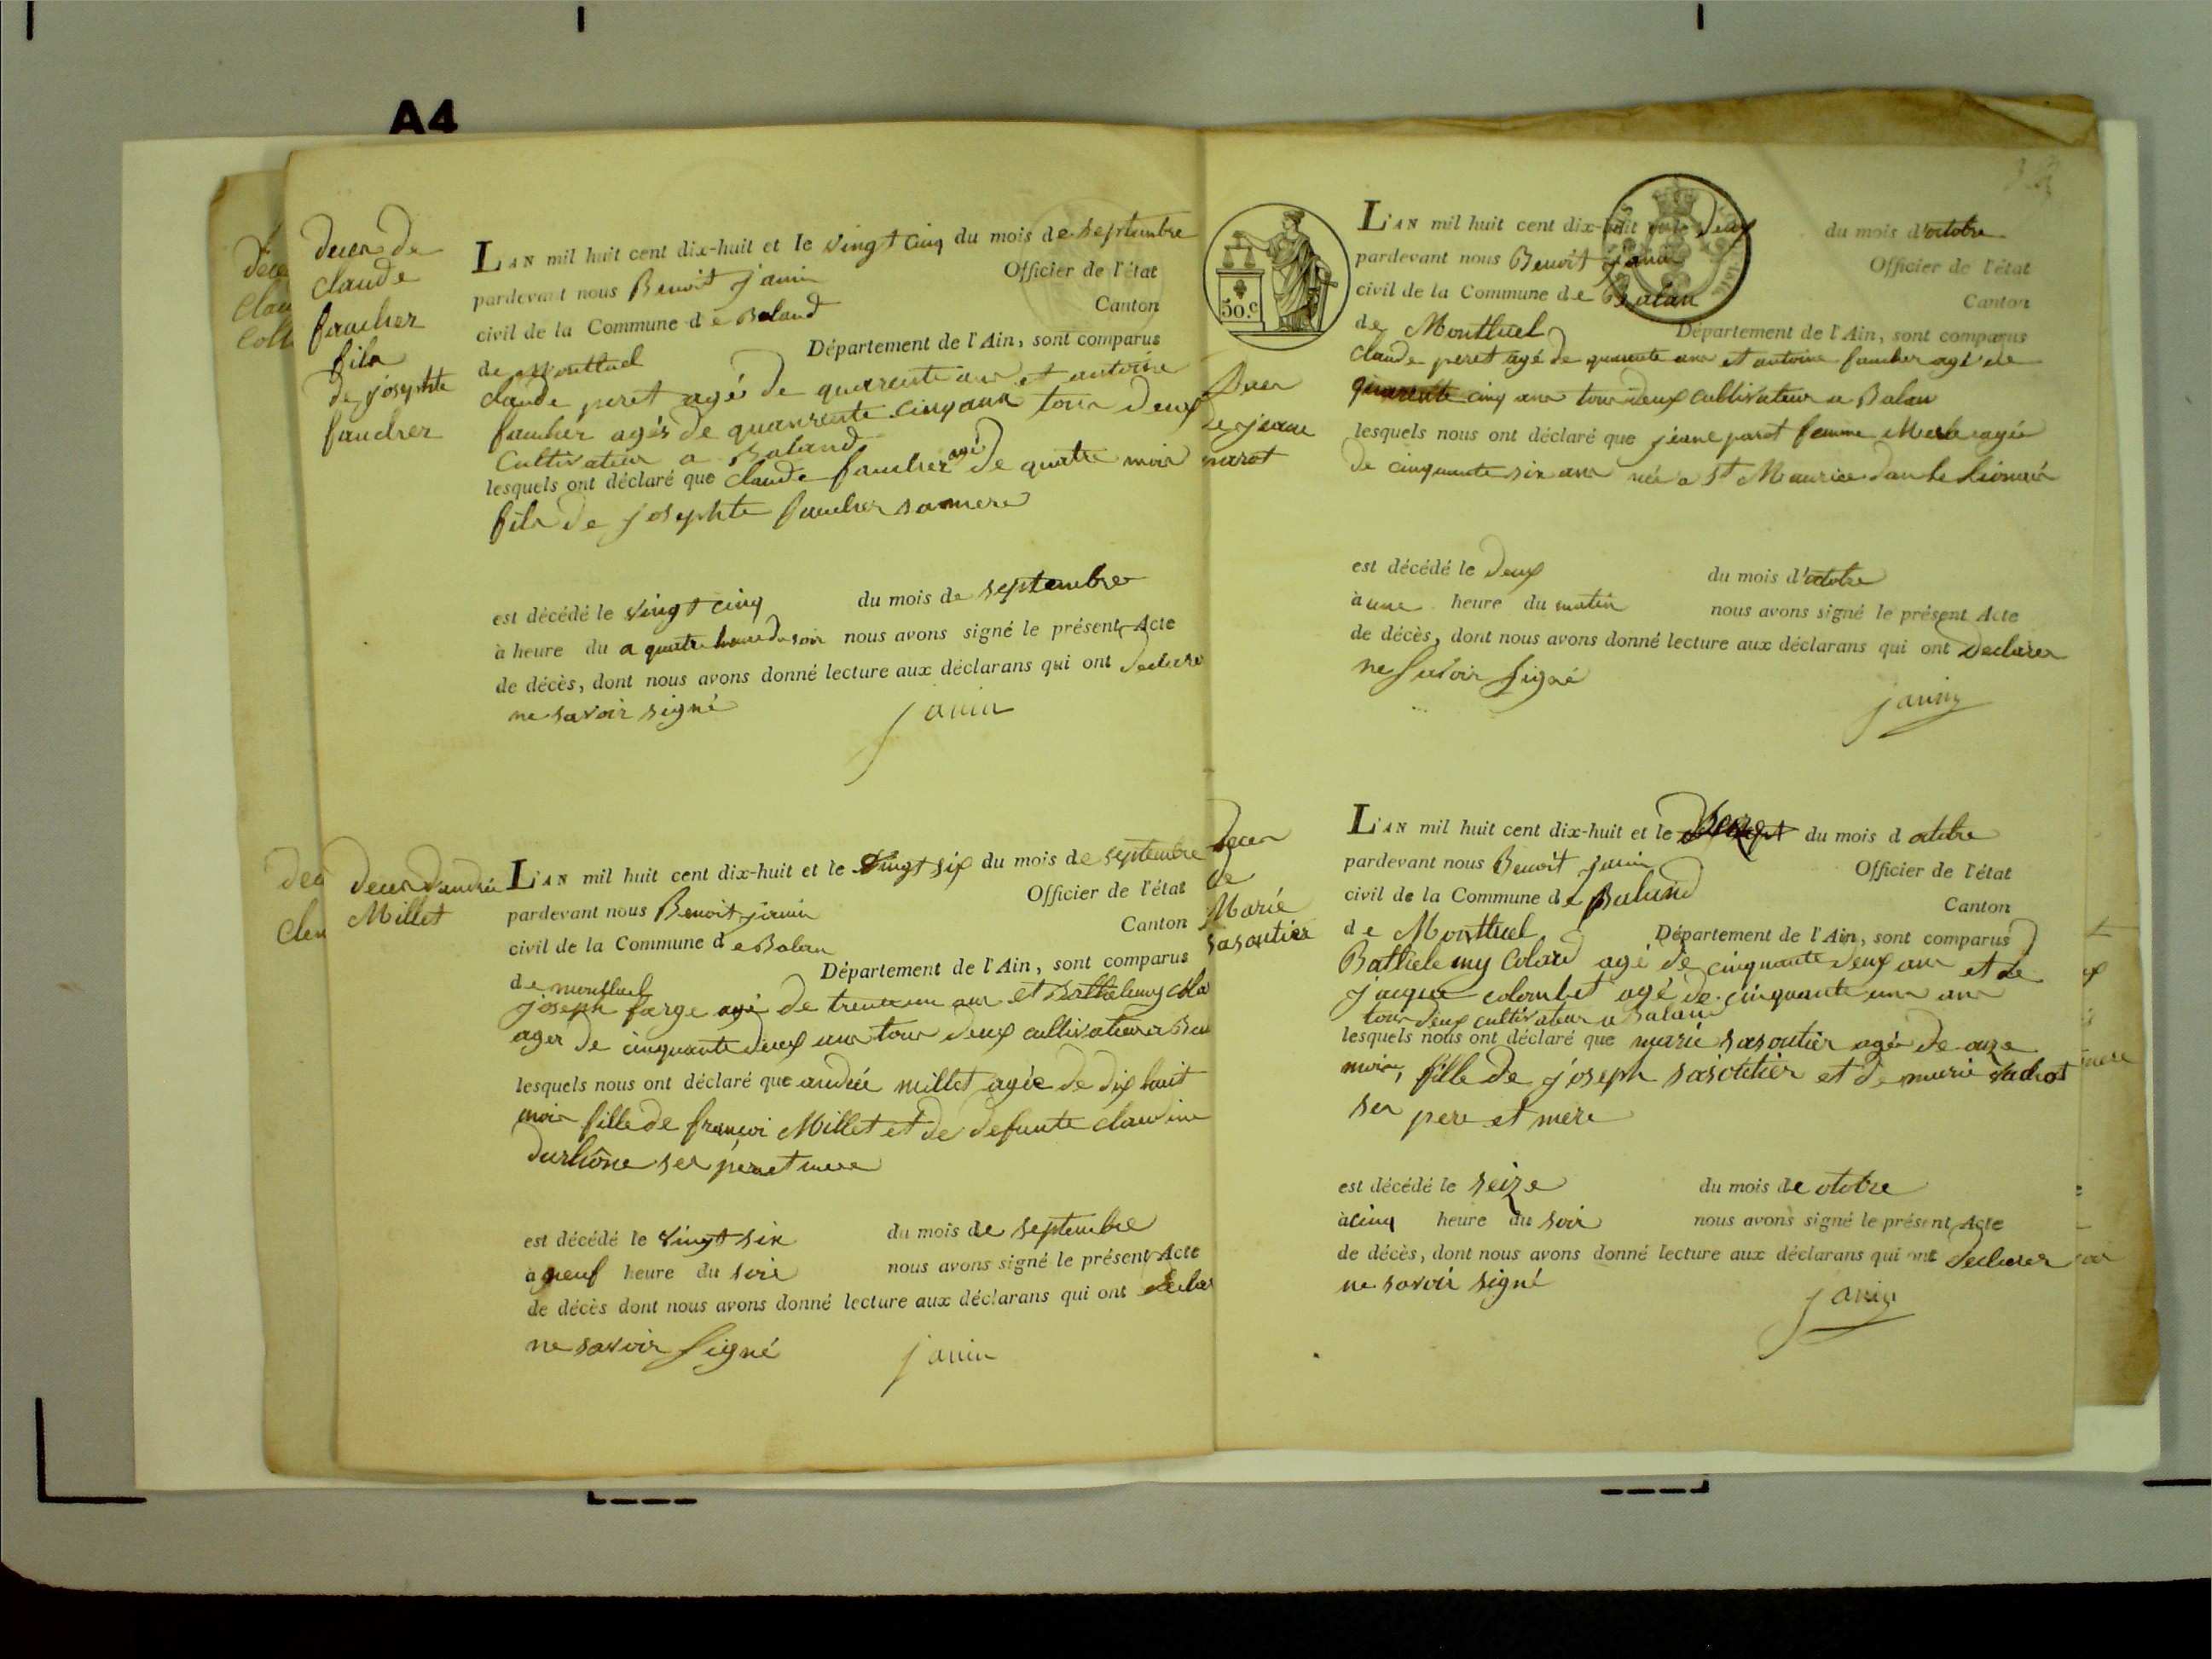 A4
decer de
claude
faucher
fils
de josephte
faucher
LAN mil huit cent dix-huit et le vingt cinq du mois de septembre
pardevant nous Benoit janin Officier de l'état
civil de la Commune de Baland Canton
de Montluel Département de l'Ain, sont comparus
claude peret agé de quarente ans et antoine
faucher agés de quanrente cinq ans tous deux
Cultivateur a Baland
lesquels ont déclaré que claude faucher agé de quatre mois
fils de josephte faucher sa mere
est décédé le vingt cinq du mois de septembre
à heure du a quatre heure du soir nous avons signé le présent Acte
de décès, dont nous avons donné lecture aux déclarans qui ont declare
ne savoir signé
janin
decer d'andrée
Millet
L'AN mil huit cent dix-huit et le vingt six du mois de septembre
pardevant nous Benoit janin Officier de l'état
civil de la Commune de Balan Canton
de montluel Département de l'Ain, sont comparus
joseph farge agé de trente un ans et Barthelemy Cola
ager de cinquante deux ans tous deux cultivateur a Bal
lesquels nous ont déclaré que andrée millet agée de dix huit
mois fille de françoi Millet et de defunte claudine
durhône ses pere et mere
est décédé le vingt six du mois de septembre
à neuf heure du soir nous avons signé le présent Acte
de décès dont nous avons donné lecture aux déclarans qui ont declar
ne savoir signé
janin
50.c
decer
de jeane
parot
L'AN mil huit cent dix-huit et le deux du mois d'octobre
pardevant nous Benoit janin Officier de l'état
civil de la Commune de Balan Canton
de Montluel Département de l'Ain, sont comparus
claude peret agé de quarente ans et antoine faucher agé de
quarente cinq ans tous deux cultivateur a Balan
lesquels nous ont déclaré que jeane parot femme Merle agée
de cinquante six ans née a St Maurice dans le Lionnais
est décédé le deux du mois d'octobre
à une heure du matin nous avons signé le présent Acte
de décès, dont nous avons donné lecture aux déclarans qui ont declarer
ne savoir signé
janin
decer
de
Marie
sasoutier
L'AN mil huit cent dix-huit et le du mois d octobre
pardevant nous Benoit janin Officier de l'état
civil de la Commune de Baland Canton
de Montluel Département de l'Ain, sont comparus
Barthelemy Colard agé de cinquante deux ans et de
jacque colombet agé de cinquante un ans
tous deux cultivateur a Baland
lesquels nous ont déclaré que marie sasoutier agée de onze
mois, fille de joseph sasoutier et de marie vachot
ses pere et mere
est décédé le seize du mois de otobre
à cinq heure du soir nous avons signé le présent Acte
de décès, dont nous avons donné lecture aux déclarans qui ont declarer
ne savoir signé
janin